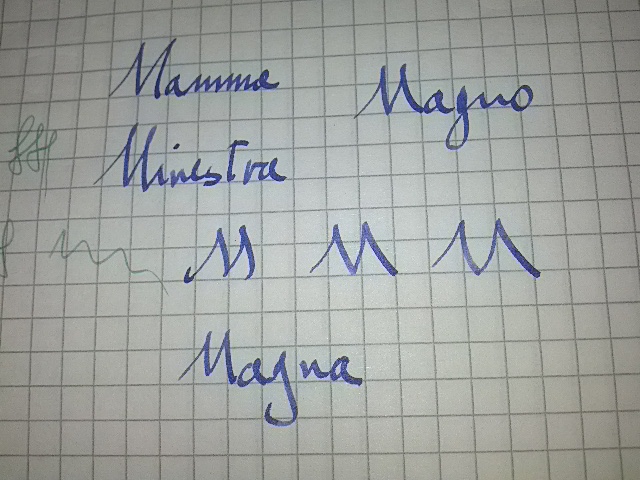 Mamma Magno
Minestra
M M M
Magna